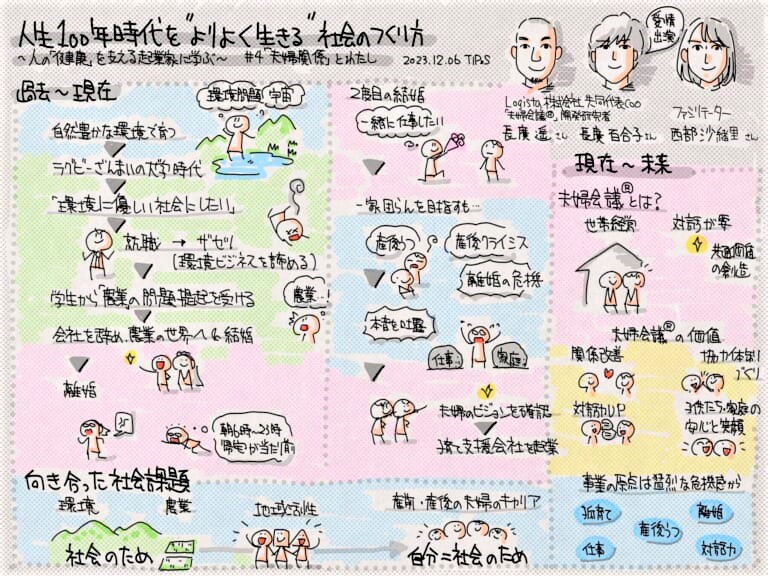 人生100年時代を"よりよく生きる"社会のつくり方
～人の「健康」を支える起業家に学ぶ～ #4「夫婦関係」とわたし 2023.12.06 TIPS
愛情出演
Logista株式会社 共同代表COO
「夫婦会議®」開発研究者
長廣 遥さん
長廣 百合子さん
ファシリテーター
西部 沙緒里さん
過去～現在
環境問題 宇宙
自然豊かな環境で育つ
ラグビーざんまいの大学時代
「環境」に優しい社会にしたい」
就職 → ザセツ
(環境ビジネスを諦める)
学生から「農業」の問題提起を受ける
農業…!
会社を辞め、農業の世界へ & 結婚
離婚
朝6時～25時
帰宅が当たり前
2度目の結婚
一緒に仕事したい
一家団らんを目指すも…
産後うつ
産後クライシス
離婚の危機
本音を吐露
仕事
家庭
夫婦のビジョンを確認
子育て支援会社を起業
現在～未来
夫婦会議®とは?
世帯経営
対話が要
共通価値
の創造
夫婦会議®の価値
関係改善
協力体制
づくり
対話力UP
子供たち・家庭の
安心と笑顔
事業の原点は猛烈な危機感から
孤育て
離婚
産後うつ
仕事
対話力
向き合った社会課題
環境
農業
社会のため
地域活性
産前・産後の夫婦のキャリア
自分=社会のため